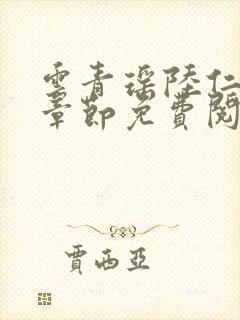 雲青瑤陸仁
章節免費閱
賈西亞